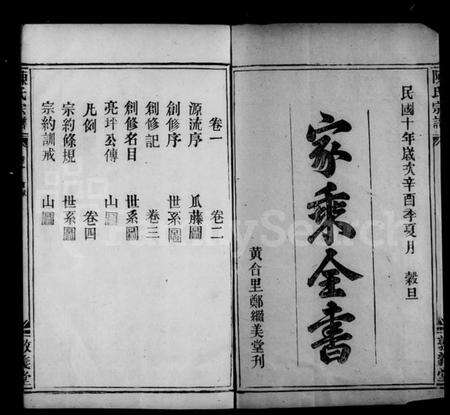 陳氏宗譜
民國十年歲次辛酉季夏月 穀旦
家乘全書
黃台里鄭繼美堂刊
敦義堂
卷一
源流序
創修序
創修記
創修名目
亮坪公傳
凡例
宗約條規
宗約訓戒
卷二
瓜藤圖
世系圖
卷三
世系圖
山圖
卷四
世系圖
山圖
陳氏宗譜
敦義堂